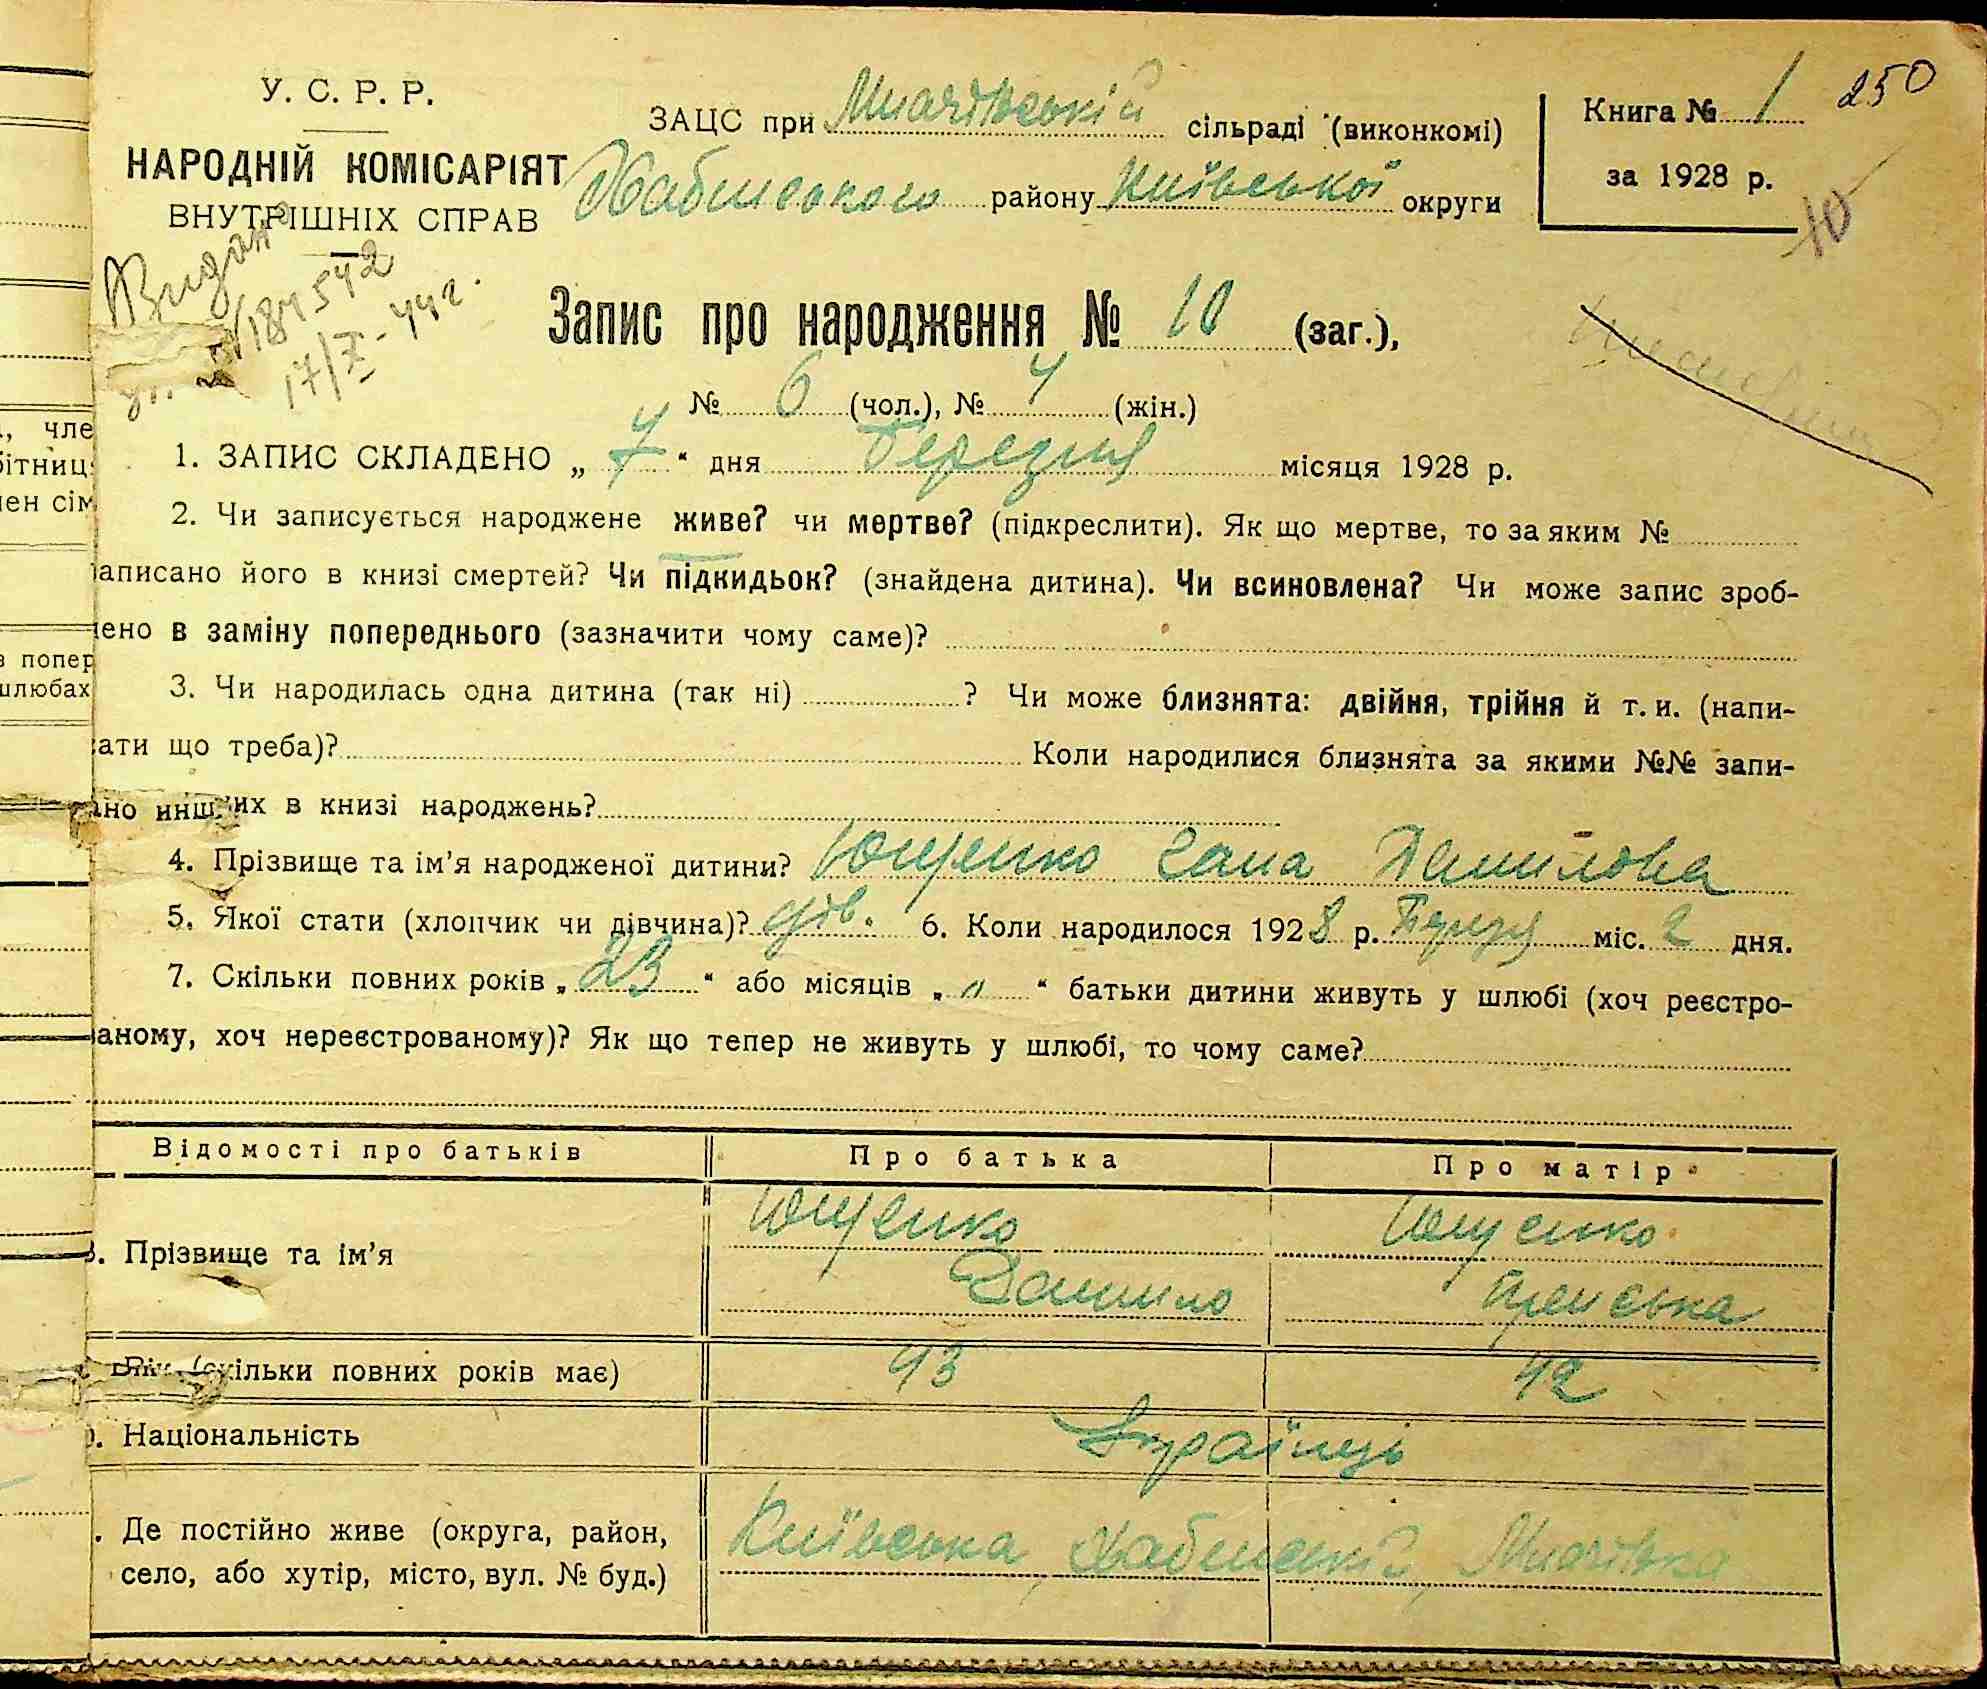 У. С. Р. Р.
НАРОДНІЙ КОМІСАРІЯТ
ВНУТРІШНІХ СПРАВ
ЗАЦС при Мпачівській сільраді (виконкомі)
Хабнського району Київської округи
Книга № 1 250
за 1928 р.
10
Видано
№ 184542
17/X-44 г.
Запис про народження № 10 (заг.),
№ 6 (чол.), № 4 (жін.)
1. ЗАПИС СКЛАДЕНО „ 7 “ дня Березня місяця 1928 р.
2. Чи записується народжене живе? чи мертве? (підкреслити). Як що мертве, то за яким №
записано його в книзі смертей? Чи підкидьок? (знайдена дитина). Чи всиновлена? Чи може запис зроб-
лено в заміну попереднього (зазначити чому саме)?
3. Чи народилась одна дитина (так ні) ? Чи може близнята: двійня, трійня й т. и. (напи-
сати що треба)? Коли народилися близнята за якими №№ запи-
ано инших в книзі народжень?
4. Прізвище та ім’я народженої дитини? Ющенко Гана Данилова
5. Якої стати (хлопчик чи дівчина)? дів. 6. Коли народилося 1928 р. Березня міс. 2 дня.
7. Скільки повних років „ 23 “ або місяців „ " “ батьки дитини живуть у шлюбі (хоч реєстро-
ваному, хоч нереєстрованому)? Як що тепер не живуть у шлюбі, то чому саме?
Відомості про батьків Про батька Про матір
8. Прізвище та ім’я Ющенко Данило Ющенко Пріська
Вік (скільки повних років має) 43 42
Національність Українці
Де постійно живе (округа, район,
село, або хутір, місто, вул. № буд.) Київська, Хабнський, Мпачівка
, чле
бітниц
лен сім
з попер
шлюбах